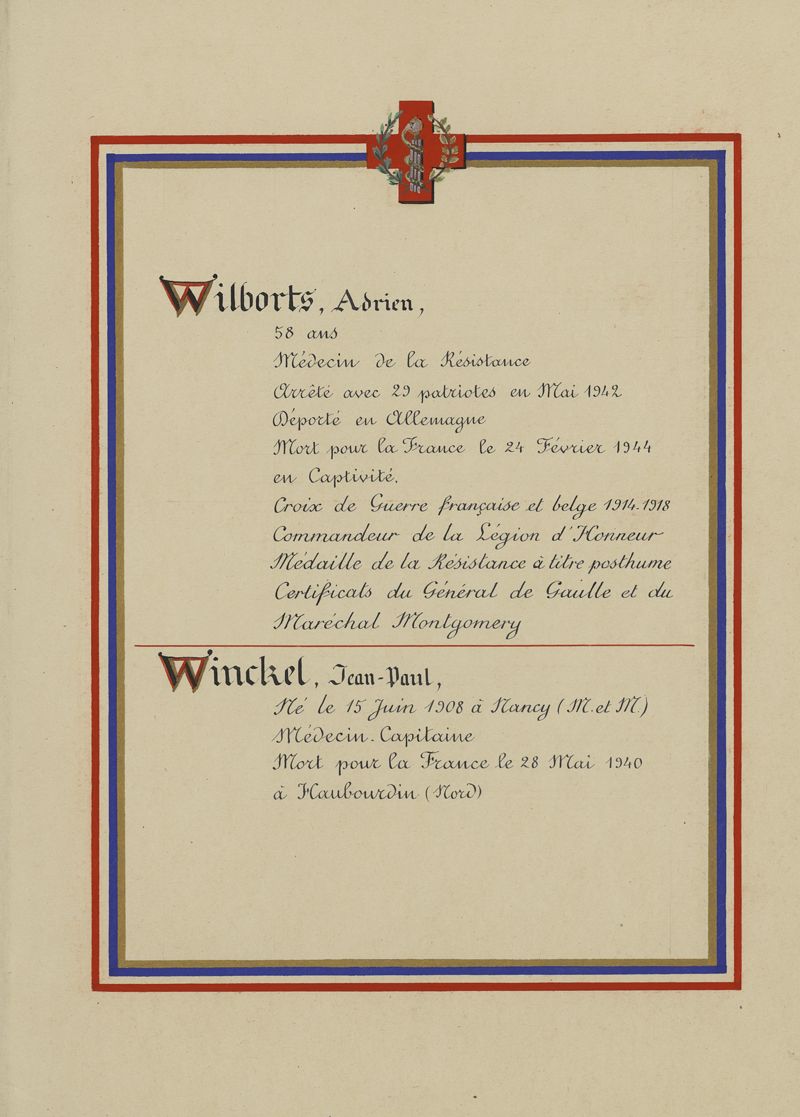 Wilborts, Adrien,
58 ans
Médecin de la Résistance
Arrêté avec 29 patriotes en Mai 1942
Déporté en Allemagne
Mort pour la France le 24 Février 1944
en Captivité.
Croix de Guerre française et belge 1914-1918
Commandeur de la Légion d'Honneur
Médaille de la Résistance à titre posthume
Certificats du Général de Gaulle et du
Maréchal Montgomery
Winckel, Jean-Paul,
Né le 15 Juin 1908 à Nancy (M. et M.)
Médecin-Capitaine
Mort pour la France le 28 Mai 1940
à Haubourdin (Nord)